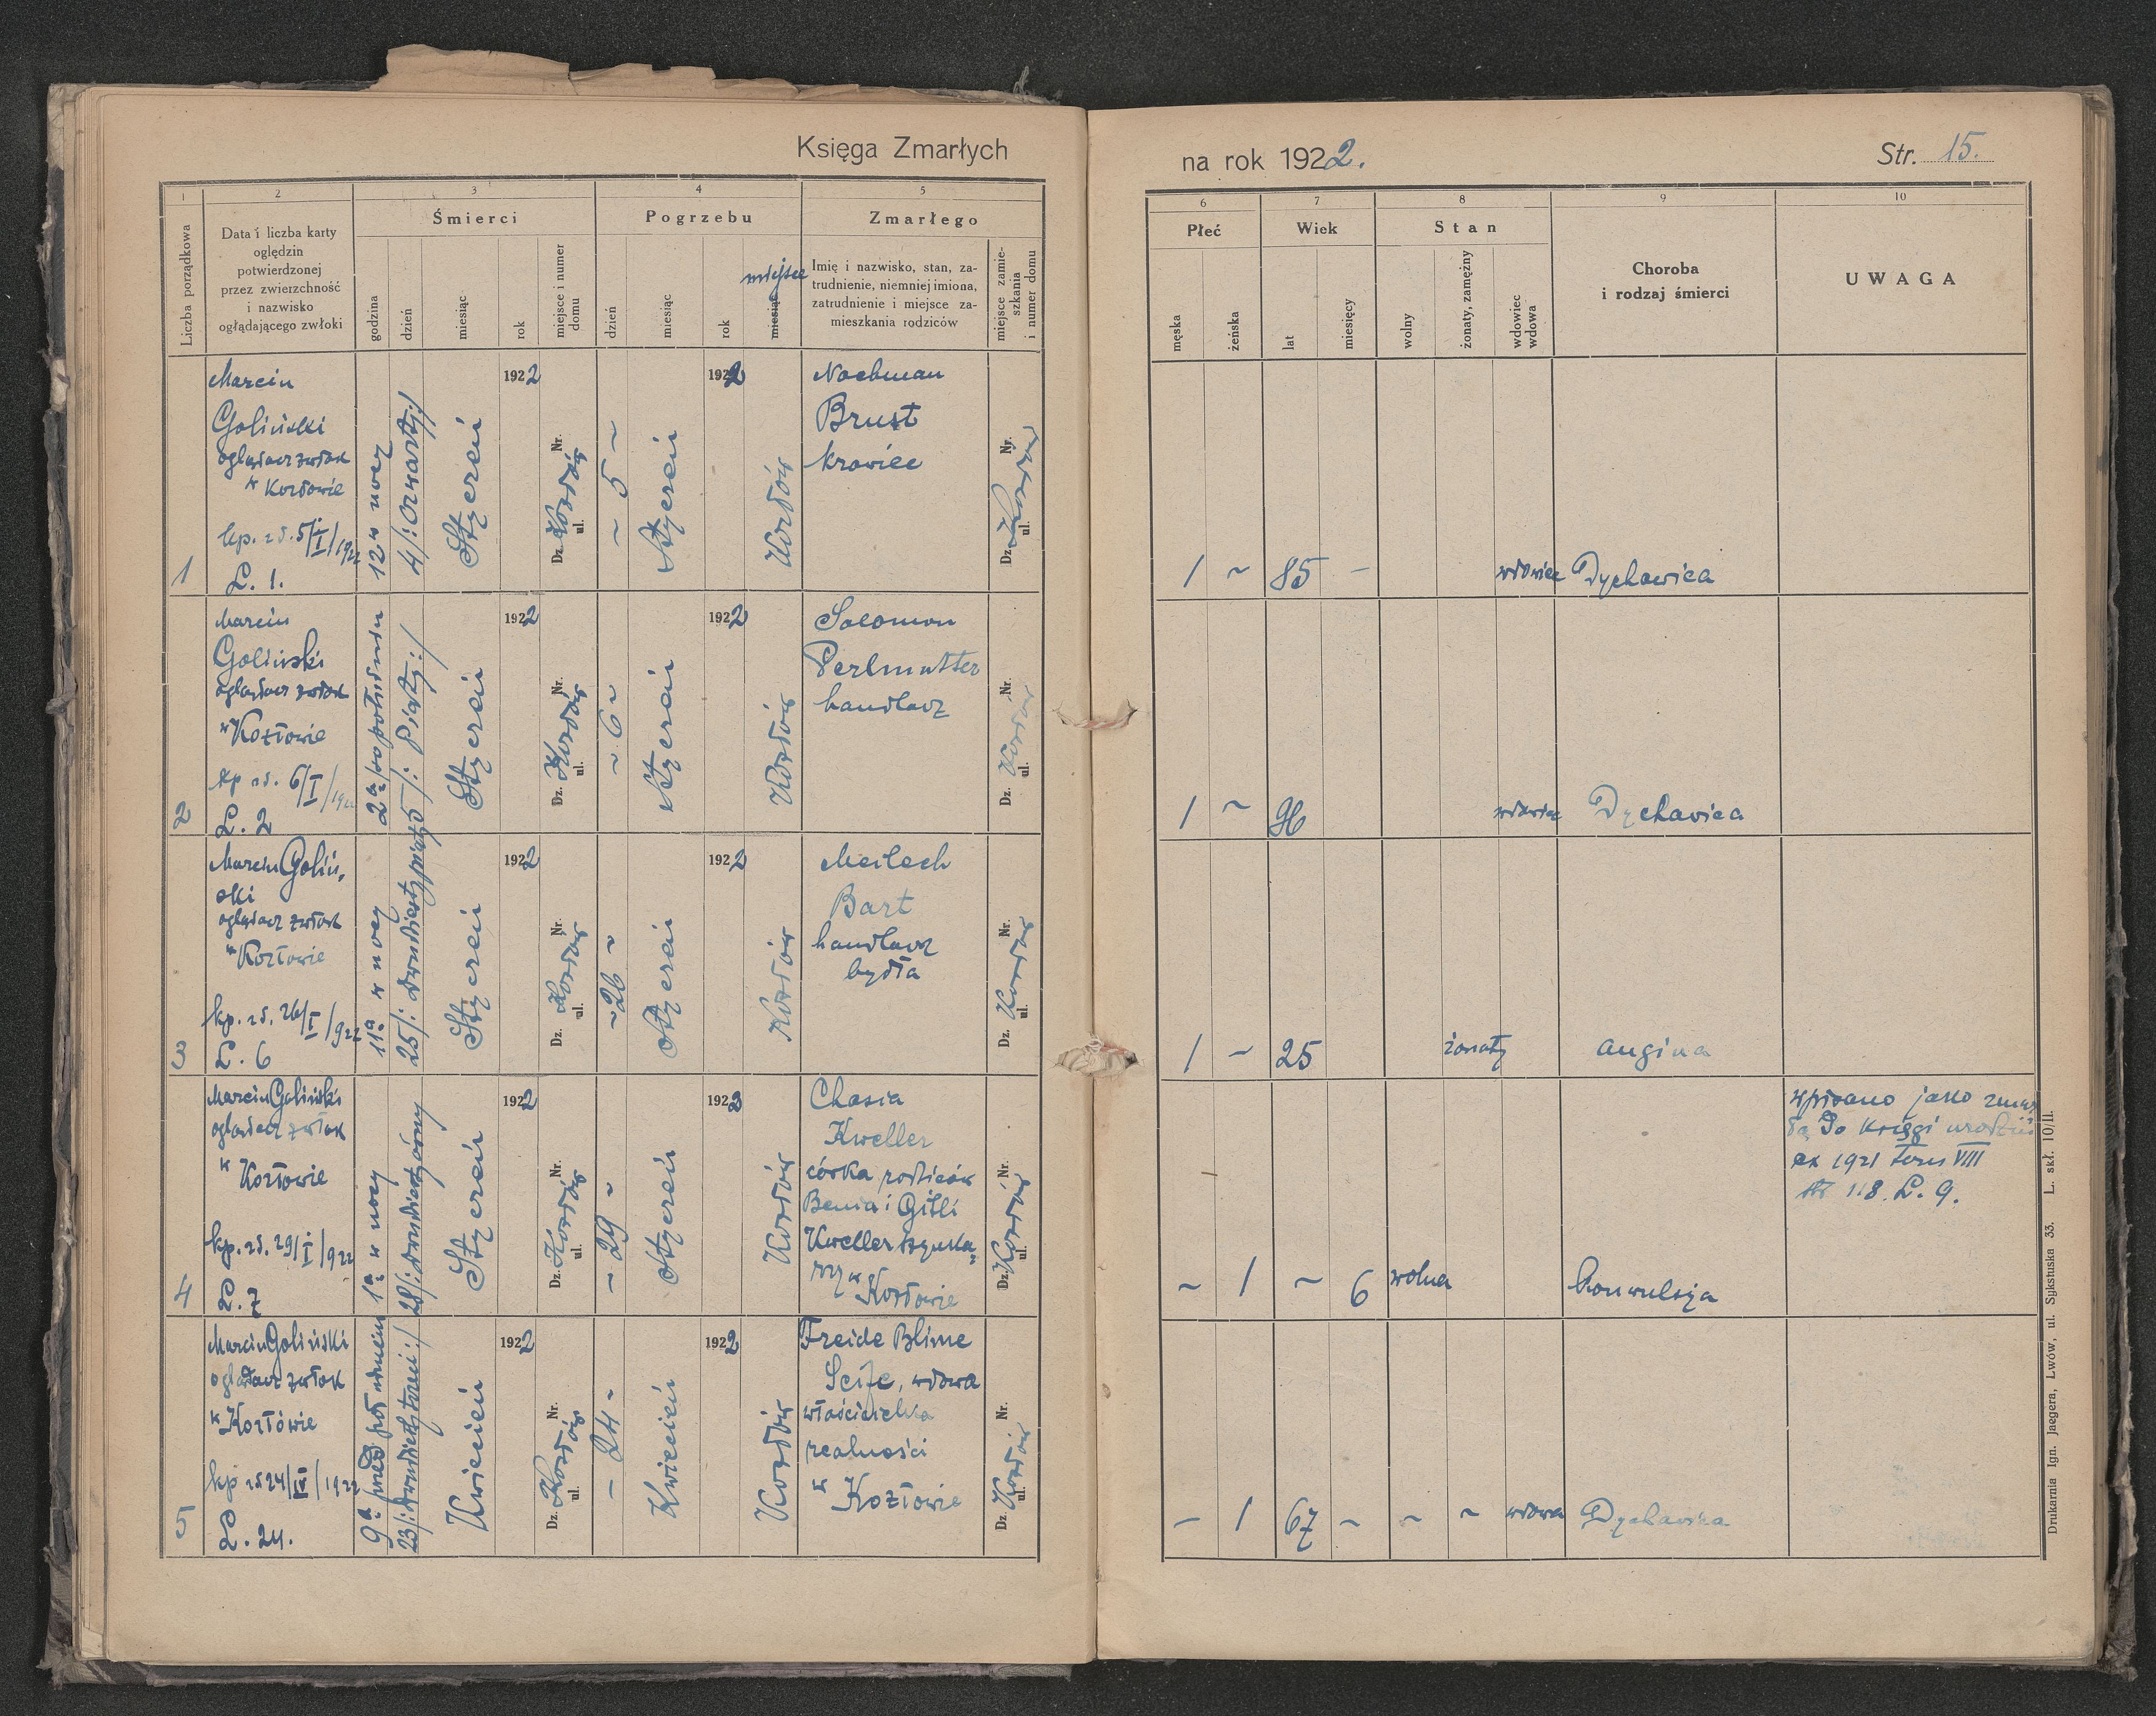 Księga Zmarłych
na rok 1922.
Str. 15.
1
2
3
4
5
6
7
8
9
10
Liczba porządkowa
Data i liczba karty
oględzin
potwierdzonej
przez zwierzchność
i nazwisko
oglądającego zwłoki
Śmierci
godzina
dzień
miesiąc
rok
miejsce i numer
domu
Pogrzebu
dzień
miesiąc
rok
miejsce
miesiąc
Zmarłego
Imię i nazwisko, stan, za-
trudnienie, niemniej imiona,
zatrudnienie i miejsce za-
mieszkania rodziców
miejsce zamie-
szkania
i numer domu
Płeć
męska
żeńska
Wiek
lat
miesięcy
Stan
wolny
żonaty, zamężny
wdowiec
wdowa
Choroba
i rodzaj śmierci
UWAGA
1
Marcin
Goliński
oglądacz zwłok
w Kozłowie
kp. z d. 5/I/1922
L. 1.
12 w nocy
4/: czwarty:/
Styczeń
1922
Dz. ul. Nr.
Kozłów
~ 5 ~
Styczeń
1922
Kozłów
Nachman
Brust
krawiec
Dz. ul. Nr.
Kozłów
1 ~ 85 –
wdowiec
Dychawica
2
Marcin
Goliński
oglądacz zwłok
w Kozłowie
kp z d. 6/I/1922
L. 2
2a po południu
5/: Piąty:/
Styczeń
1922
Dz. ul. Nr.
Kozłów
~ 6 ~
Styczeń
1922
Kozłów
Salomon
Perlmutter
handlarz
Dz. ul. Nr.
Kozłów
1 ~
wdowiec
Dychawica
3
Marcin Goliń,
ski
oglądacz zwłok
w Kozłowie
kp. z d. 26/I/922
L. 6
11a w nocy
25/: dwudziesty piąty
Styczeń
1922
Dz. ul. Nr.
Kozłów
~ 26 ~
Styczeń
1922
Kozłów
Meilech
Bart
handlarz
bydła
Dz. ul. Nr.
Kozłów
1 ~ 25
żonaty
angina
4
Marcin Goliński
oglądacz zwłok
w Kozłowie
kp. z d. 29/I/922
L. 7
1a w nocy
28/: dwudziesty ósmy
Styczeń
1922
Dz. ul. Nr.
Kozłów
~ 29 ~
Styczeń
1922
Kozłów
Chasia
Kweller
córka rodziców
Benia i Gitli
Kweller
w Kozłowie
Dz. ul. Nr.
Kozłów
~ 1 ~ 6
wolna
konwulsja
wpisano jako zmar
łą do księgi urodzin
ex 1921 Tom VIII
str 118. L. 9.
5
Marcin Goliński
oglądacz zwłok
w Kozłowie
kp z d 24/IV/1922
L. 24.
9a przed południem
23/: dwudziesty trzeci:/
Kwiecień
1922
Dz. ul. Nr.
Kozłów
– 24 –
Kwiecień
1922
Kozłów
Freide Blime
Seife, wdowa
właścicielka
realności
w Kozłowie
Dz. ul. Nr.
Kozłów
– 1 67 ~ ~ ~
wdowa
Dychawica
Drukarnia Ign. Jaegera, Lwów, ul. Sykstuska 33. L. skł. 10/II.